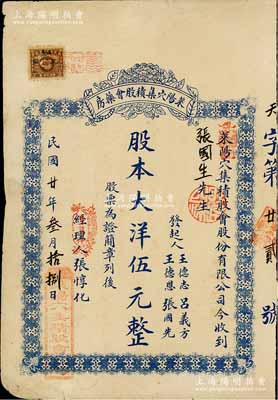 上海陽明拍賣
耒陽六集積股會藥房
天字第廿貳號
耒陽六集積股會股份有限公司今收到
張國生先生
發起人
王德志 呂義方
王德恩 張國先
股本大洋伍元整
股票為證簡章列後
經理人張惇化
民國廿年叁月拾捌日
上海陽明拍賣